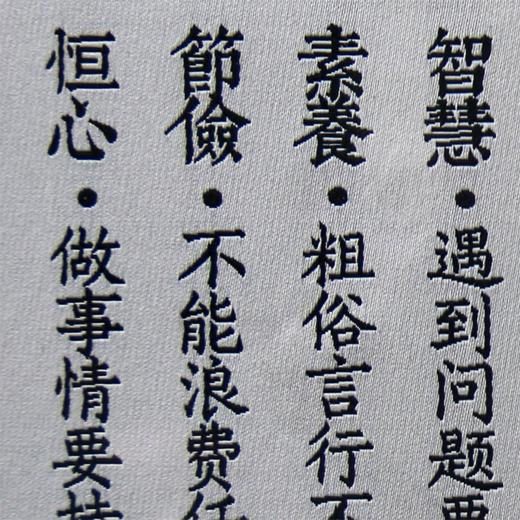 智慧・遇到问题要
素養・粗俗言行不
節儉・不能浪费任
恒心・做事情要持